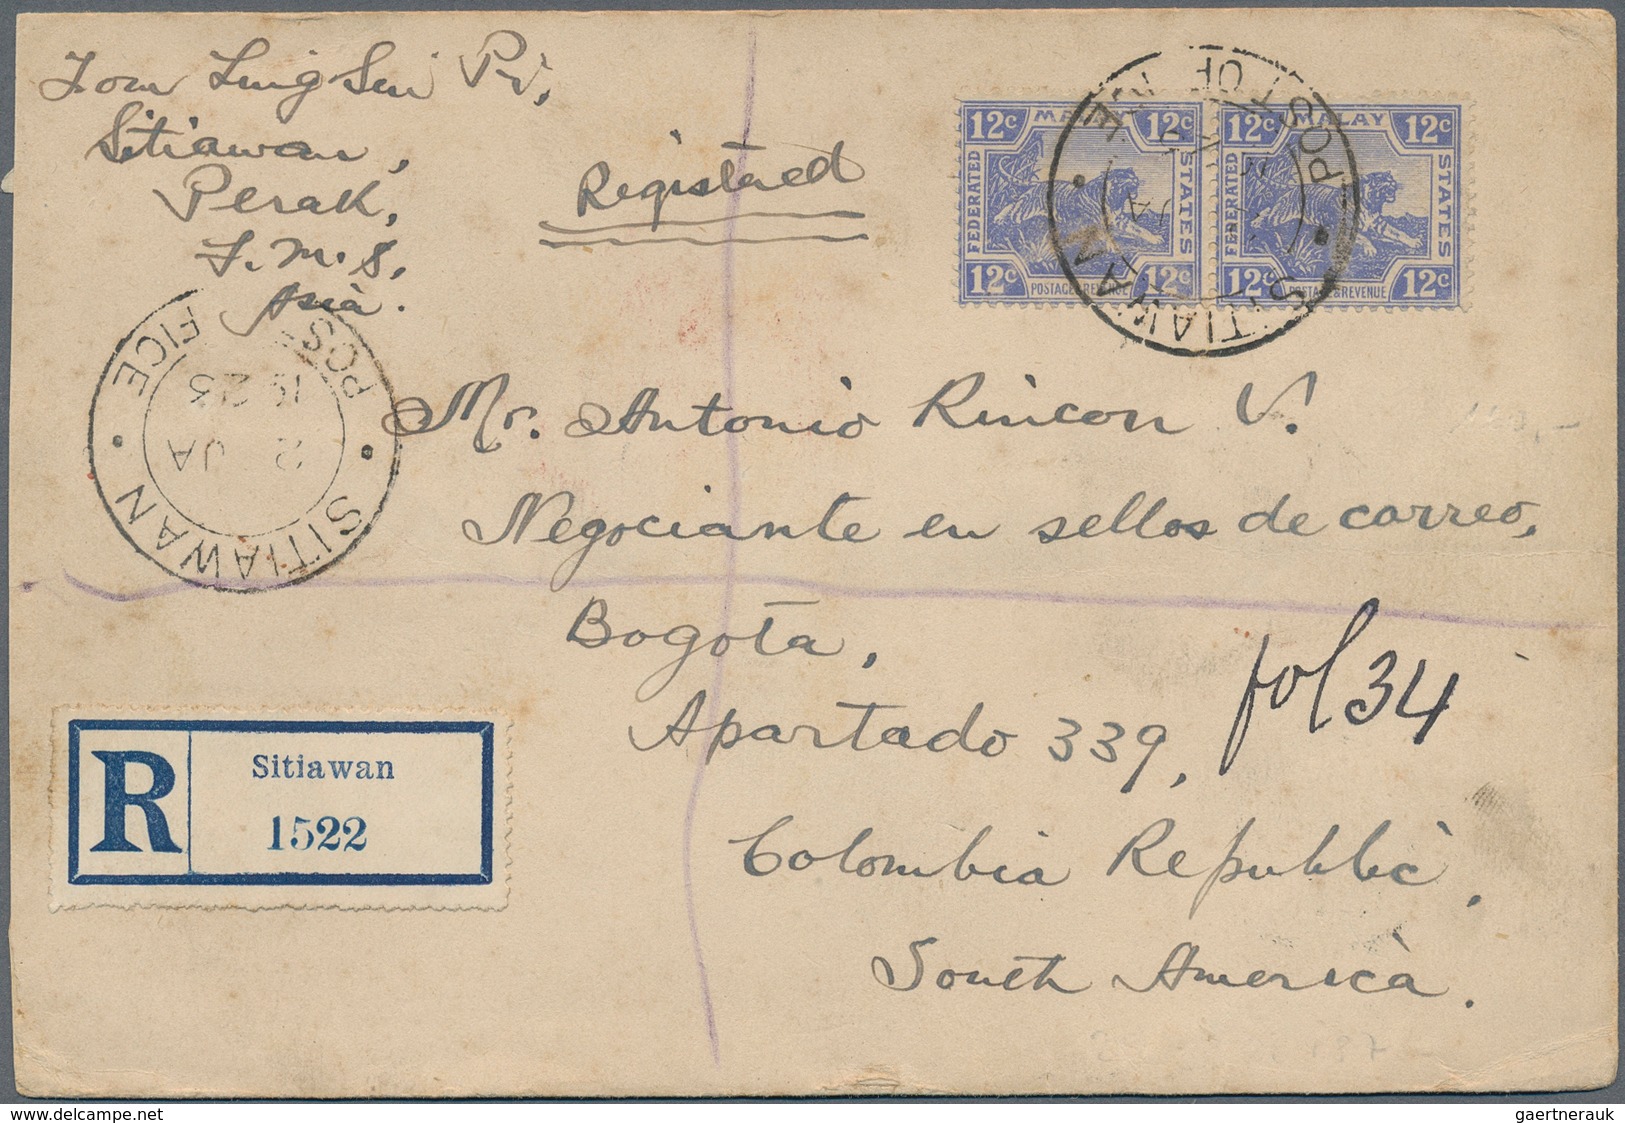 Sitiawan,
Perak,
F. M. S,
Asia.
Registered
12c MALAY 12c
FEDERATED STATES
12c POSTAGE & REVENUE 12c
12c MALAY 12c
FEDERATED STATES
12c POSTAGE & REVENUE 12c
SITIAWAN POST OFFICE
JA
SITIAWAN POST OFFICE
2 JA
1923
Mr. Antonio Rincon V.
Negociante en sellos de correo,
Bogota,
Apartado 339,
fol 34
Colombia Republic,
South America.
R Sitiawan
1522
delcampe.net
gaertnerauk